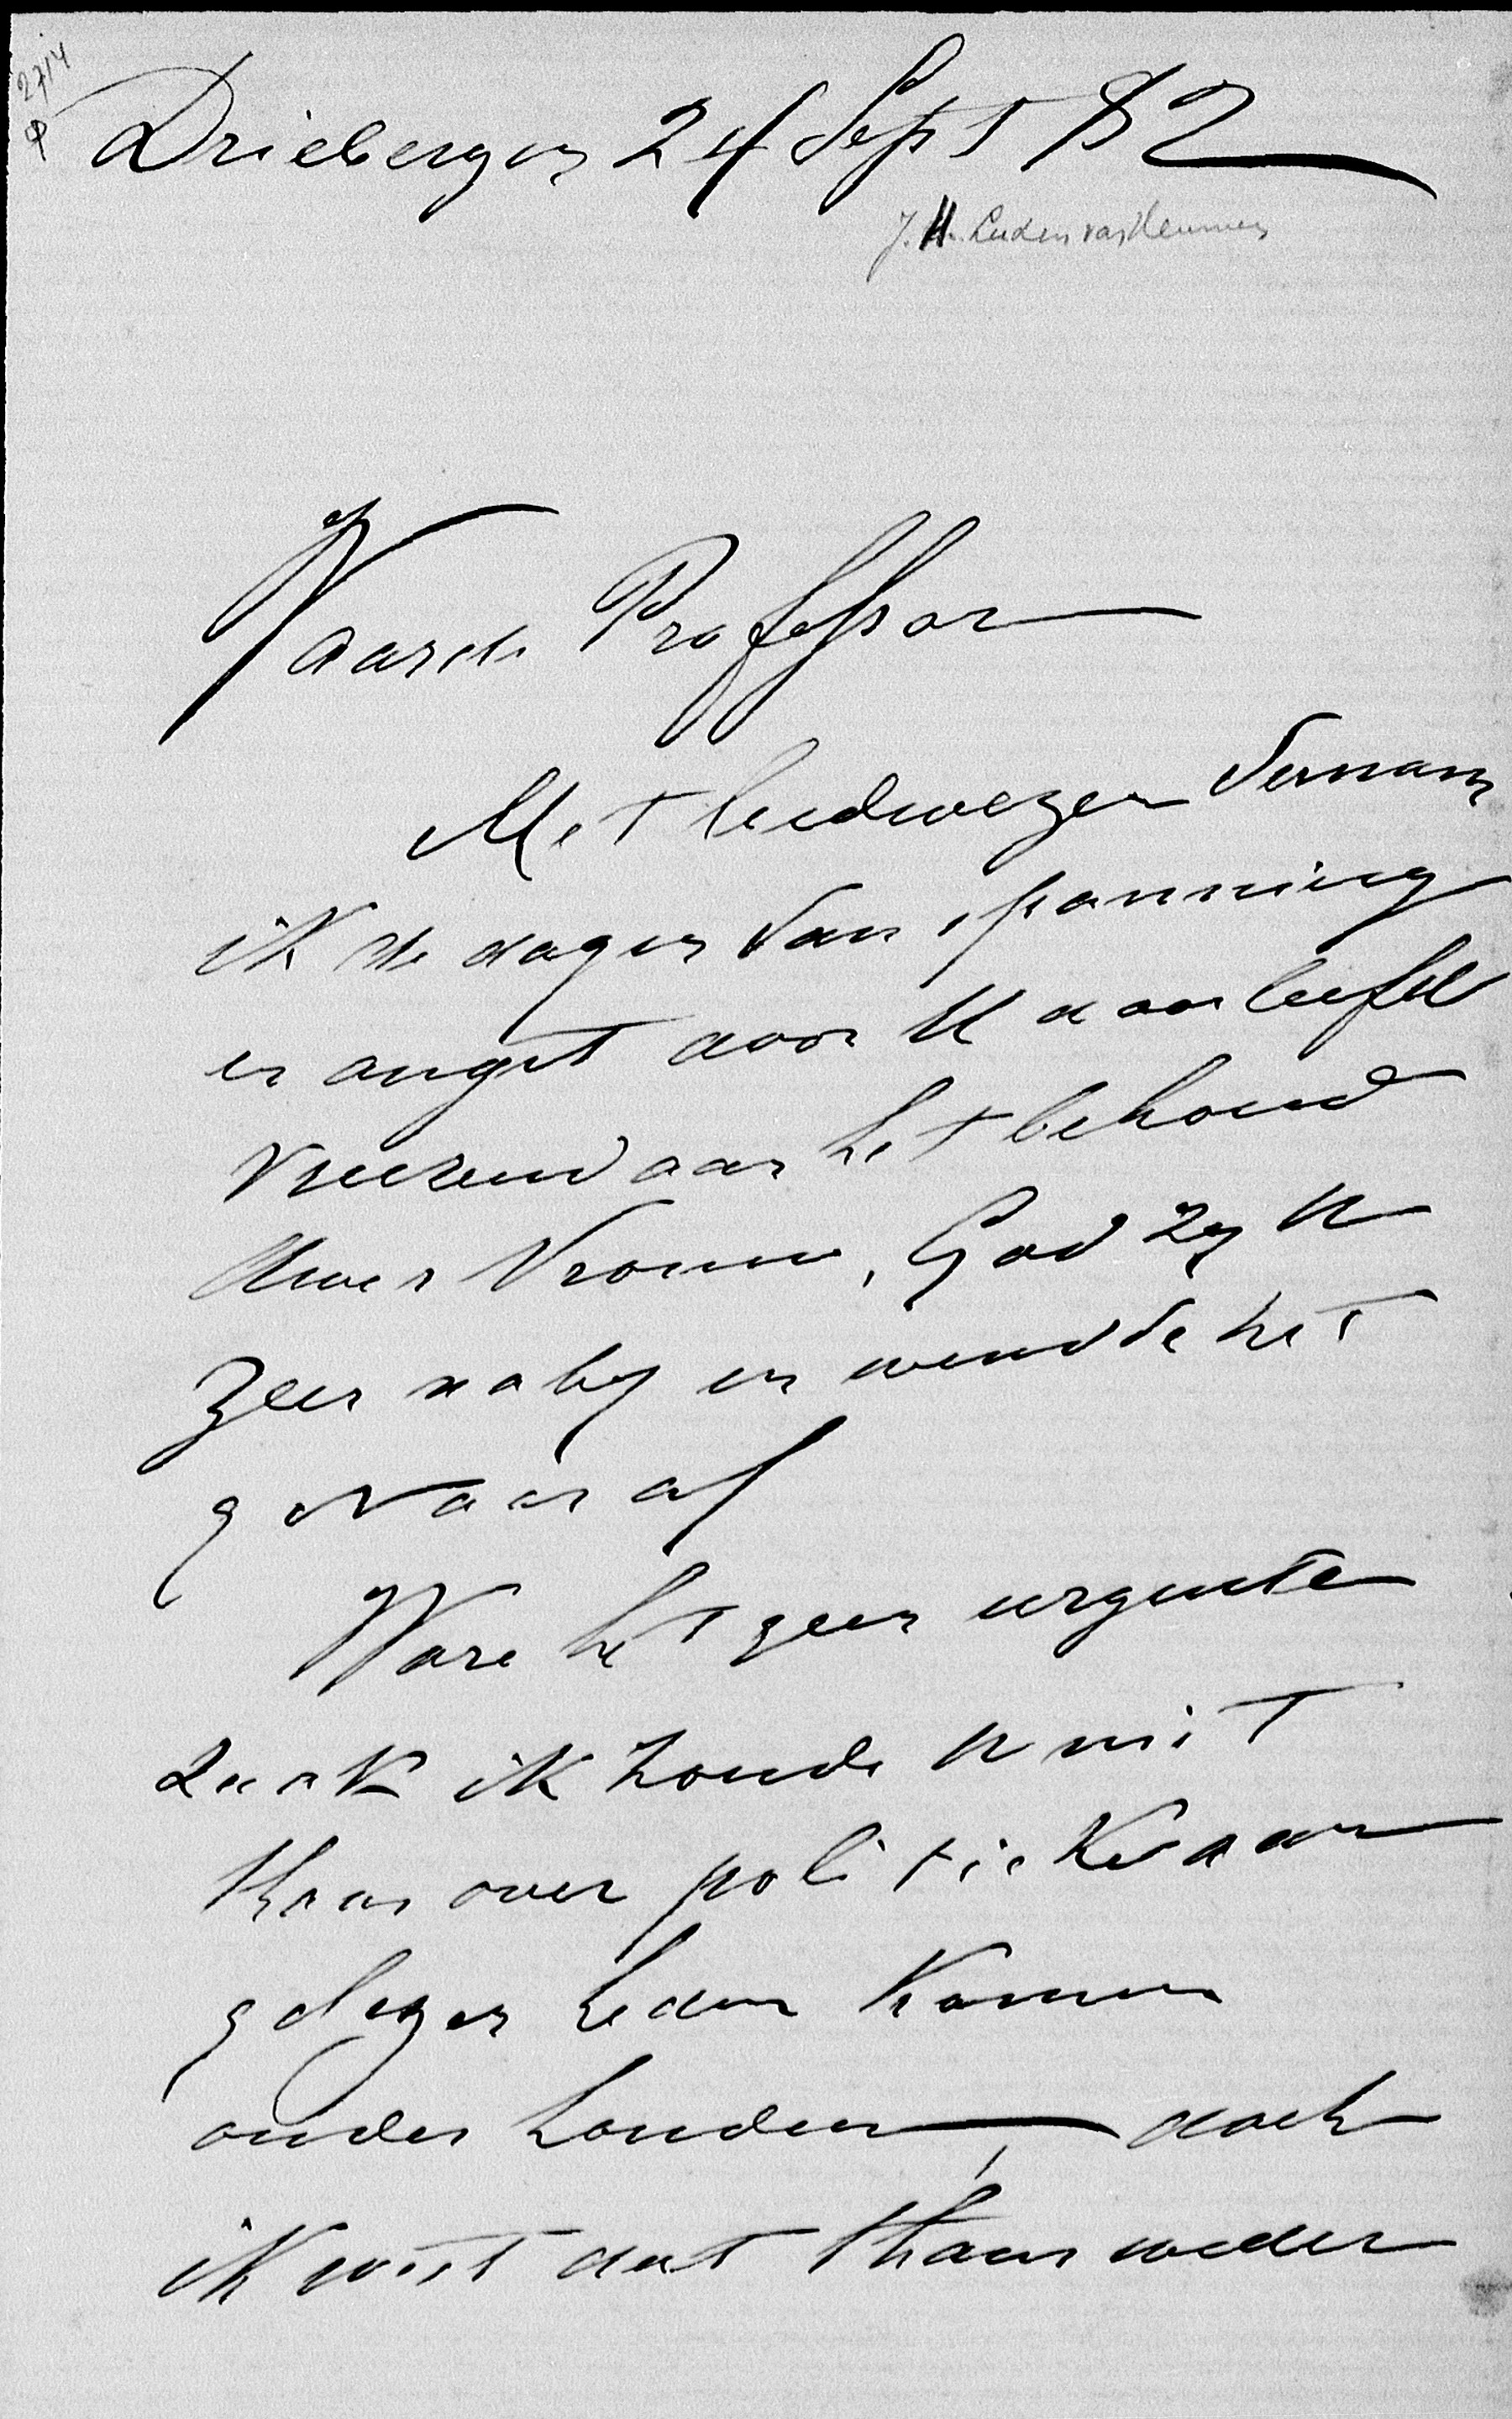 2714
φ
Driebergen 24 Sept 82
J. H. Luden van Heumen
Waarde Professor
Met leedwezen vernam
ik de dagen van spanning
en angst door U doorleefd
vreezend aan het behoud
Uwer Vrouw, God zy U
zeer naby en wendde het
gevaar af
Ware het geen urgente
zaak ik zoude U niet
thans over politieke aan
gelegenheden komen
onderhouden, doch
ik weet dat thans weder